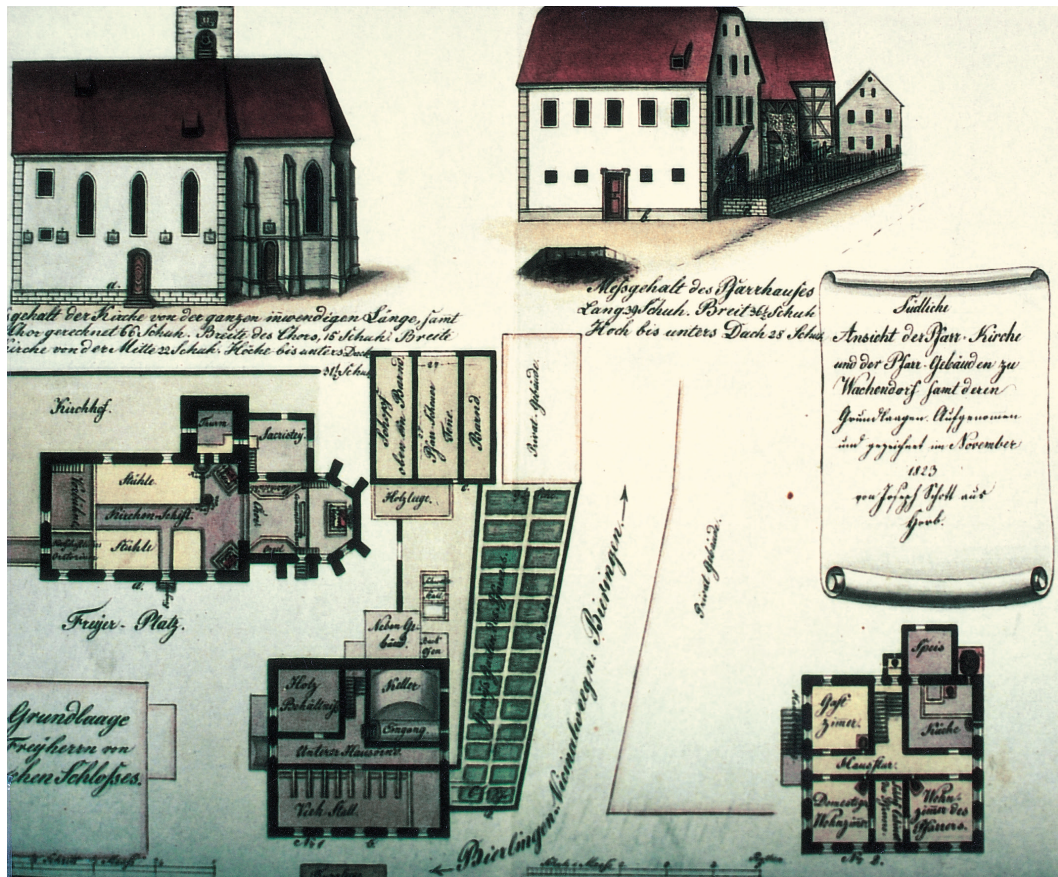 gehalt der Kirche von der ganzen innwendigen Länge, samt
Chor gerechnet 66 Schuh. Breite des Chors, 15 Schuh. Breite
Kirche von der Mitte 22 Schuh. Höche bis unters Dach
31½ Schuh
a.
b
Messgehalt des Pfarrhauses
Lang 39 Schuh. Breit 36½ Schuh
Hoch bis unters Dach 28 Schuh
Südliche
Ansicht der Pfarr-Kirche
und der Pfarr-Gebäuden zu
Wachendorf samt deren
Grundlaagen. Aufgenomen
und gezeichnet im November
1823
von Joseph Schott aus
Horb.
Kirchhof.
Thurm
Sacristey.
Stühle
Kirchen-Schif.
Stühle
Oratorium
Chor
a.
Freyer-Platz.
Schopf
oben der Barnd.
Pfarr-Scheuer
Töne.
Barnd.
c.
Holzlege.
Privat-Gebäude.
Privat Gebäude.
Neben Ge-
bäud.
Back
Ofen
Holz
Behältniß
Keller
Eingang.
Unterer Hausörne.
Vieh-Stall.
No 1
b.
d
Bierlingen. Vicinalweg n. Biesingen.
Grundlaage
Freyherrn von
schen Schloßes.
Speis
Gast
zimer.
Küche
Hausflur.
Domestiquen
Wohnzimer.
Wohn-
zimer des
Pfarrers.
No 2.